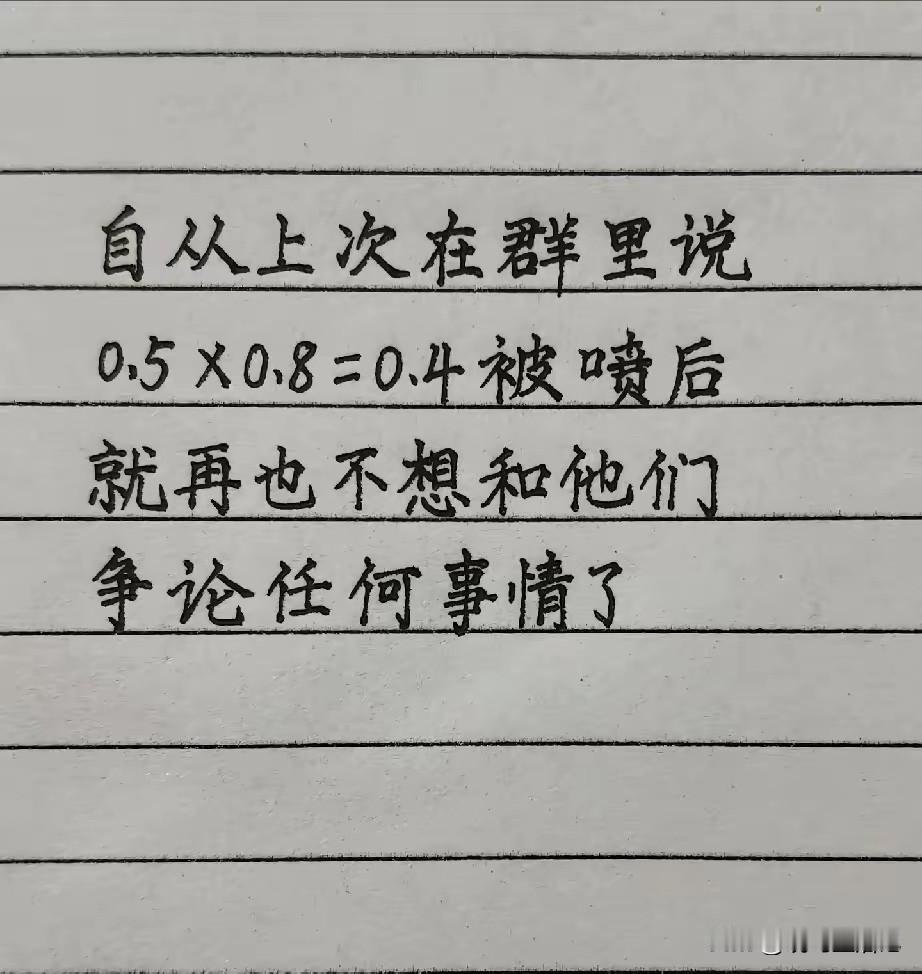 自从上次在群里说
0.5×0.8=0.4被喷后
就再也不想和他们
争论任何事情了